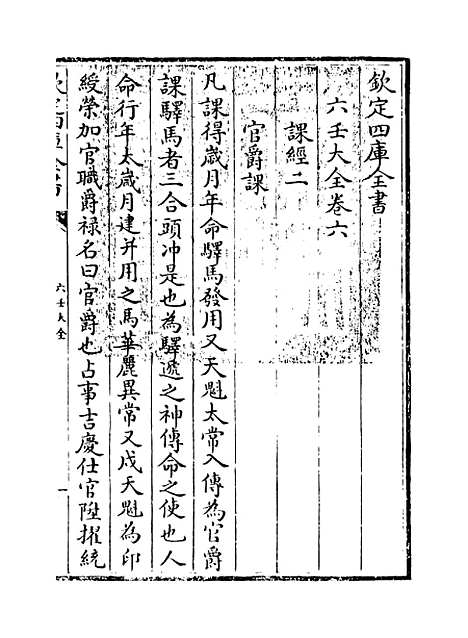 欽定四庫全書
六壬大全卷六
課經二
官爵課
凡課得歲月年命驛馬發用又天魁太常入傳為官爵
課驛馬者三合頭冲是也為驛遞之神傳命之使也人
命行年太歲月建并用之馬華麗異常又戌天魁為印
綬榮加官職爵禄名曰官爵也占事吉慶仕官陞擢統
六壬大全
一